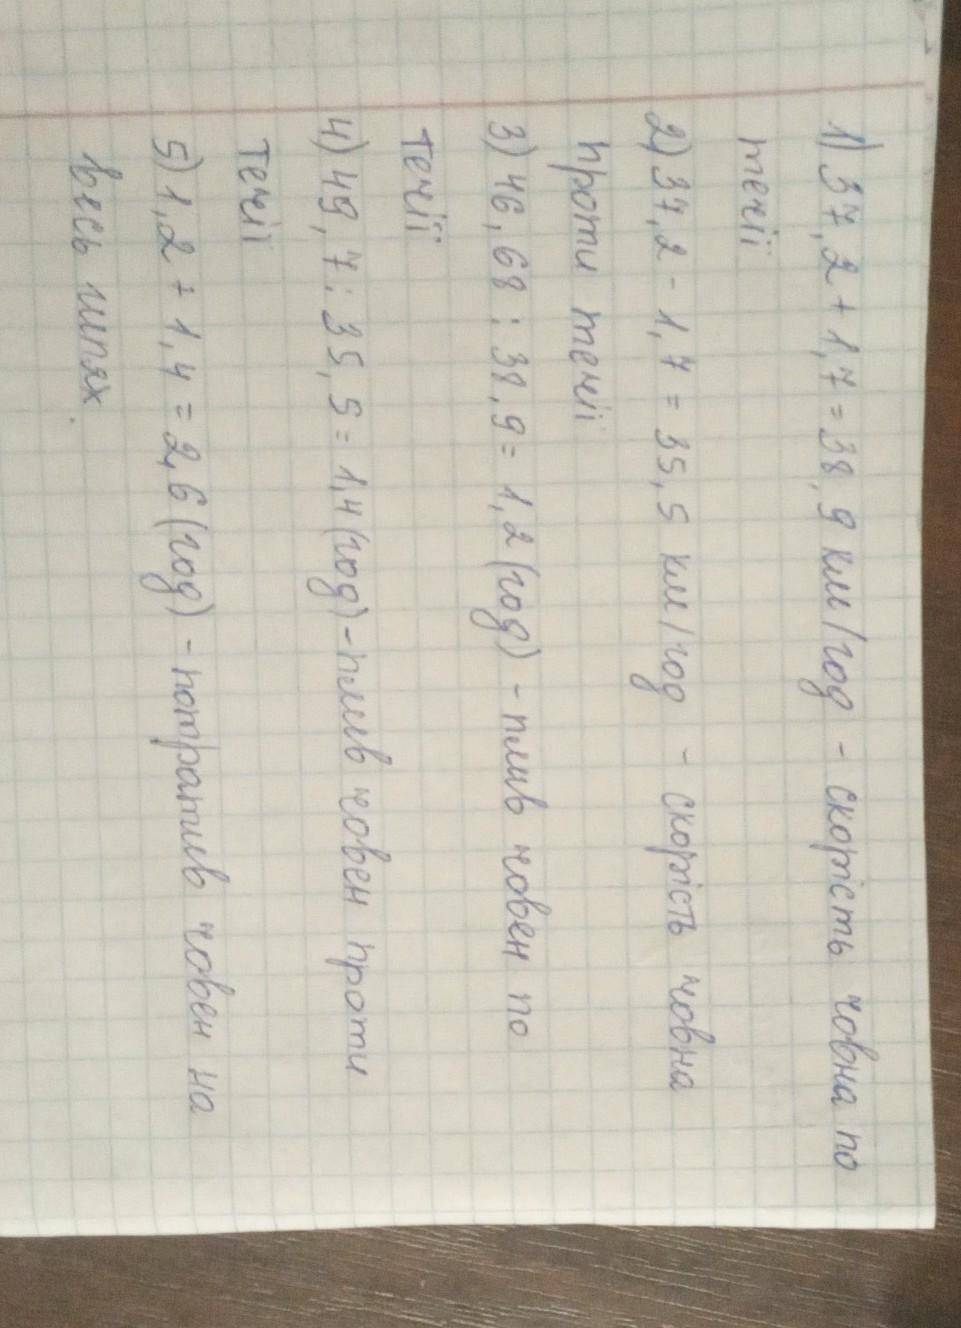 1) 37,2 + 1,7 = 38,9 км/год - скорість човна по
течії
2) 37,2 - 1,7 = 35,5 км/год - скорість човна
проти течії
3) 46,68 : 38,9 = 1,2 (год) - плив човен по
течії
4) 49,7 : 35,5 = 1,4 (год) - плив човен проти
течії
5) 1,2 + 1,4 = 2,6 (год) - потратив човен на
весь шлях.